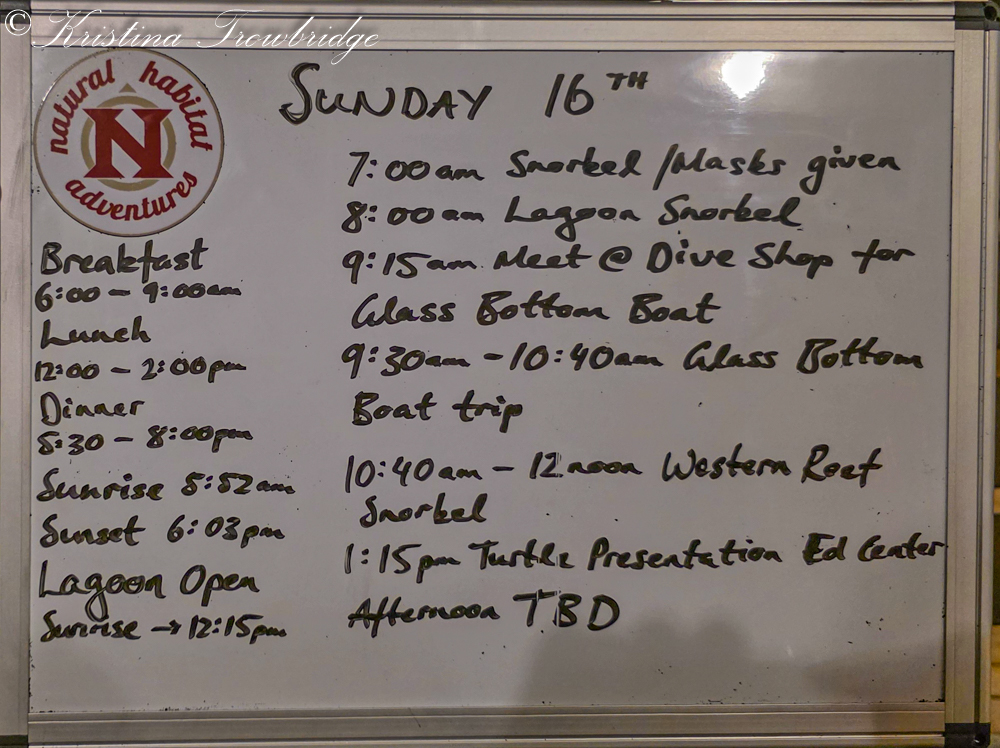 © Kristina Trowbridge
natural habitat
N
adventures
SUNDAY 16TH
Breakfast
6:00 - 9:00am
Lunch
12:00 - 2:00pm
Dinner
5:30 - 8:00pm
Sunrise 5:52am
Sunset 6:03pm
Lagoon Open
Sunrise → 12:15pm
7:00am Snorkel / Masks given
8:00am Lagoon Snorkel
9:15am Meet @ Dive Shop for
Glass Bottom Boat
9:30am - 10:40am Glass Bottom
Boat trip
10:40am - 12 noon Western Reef
Snorkel
1:15pm Turtle Presentation Ed Center
Afternoon TBD